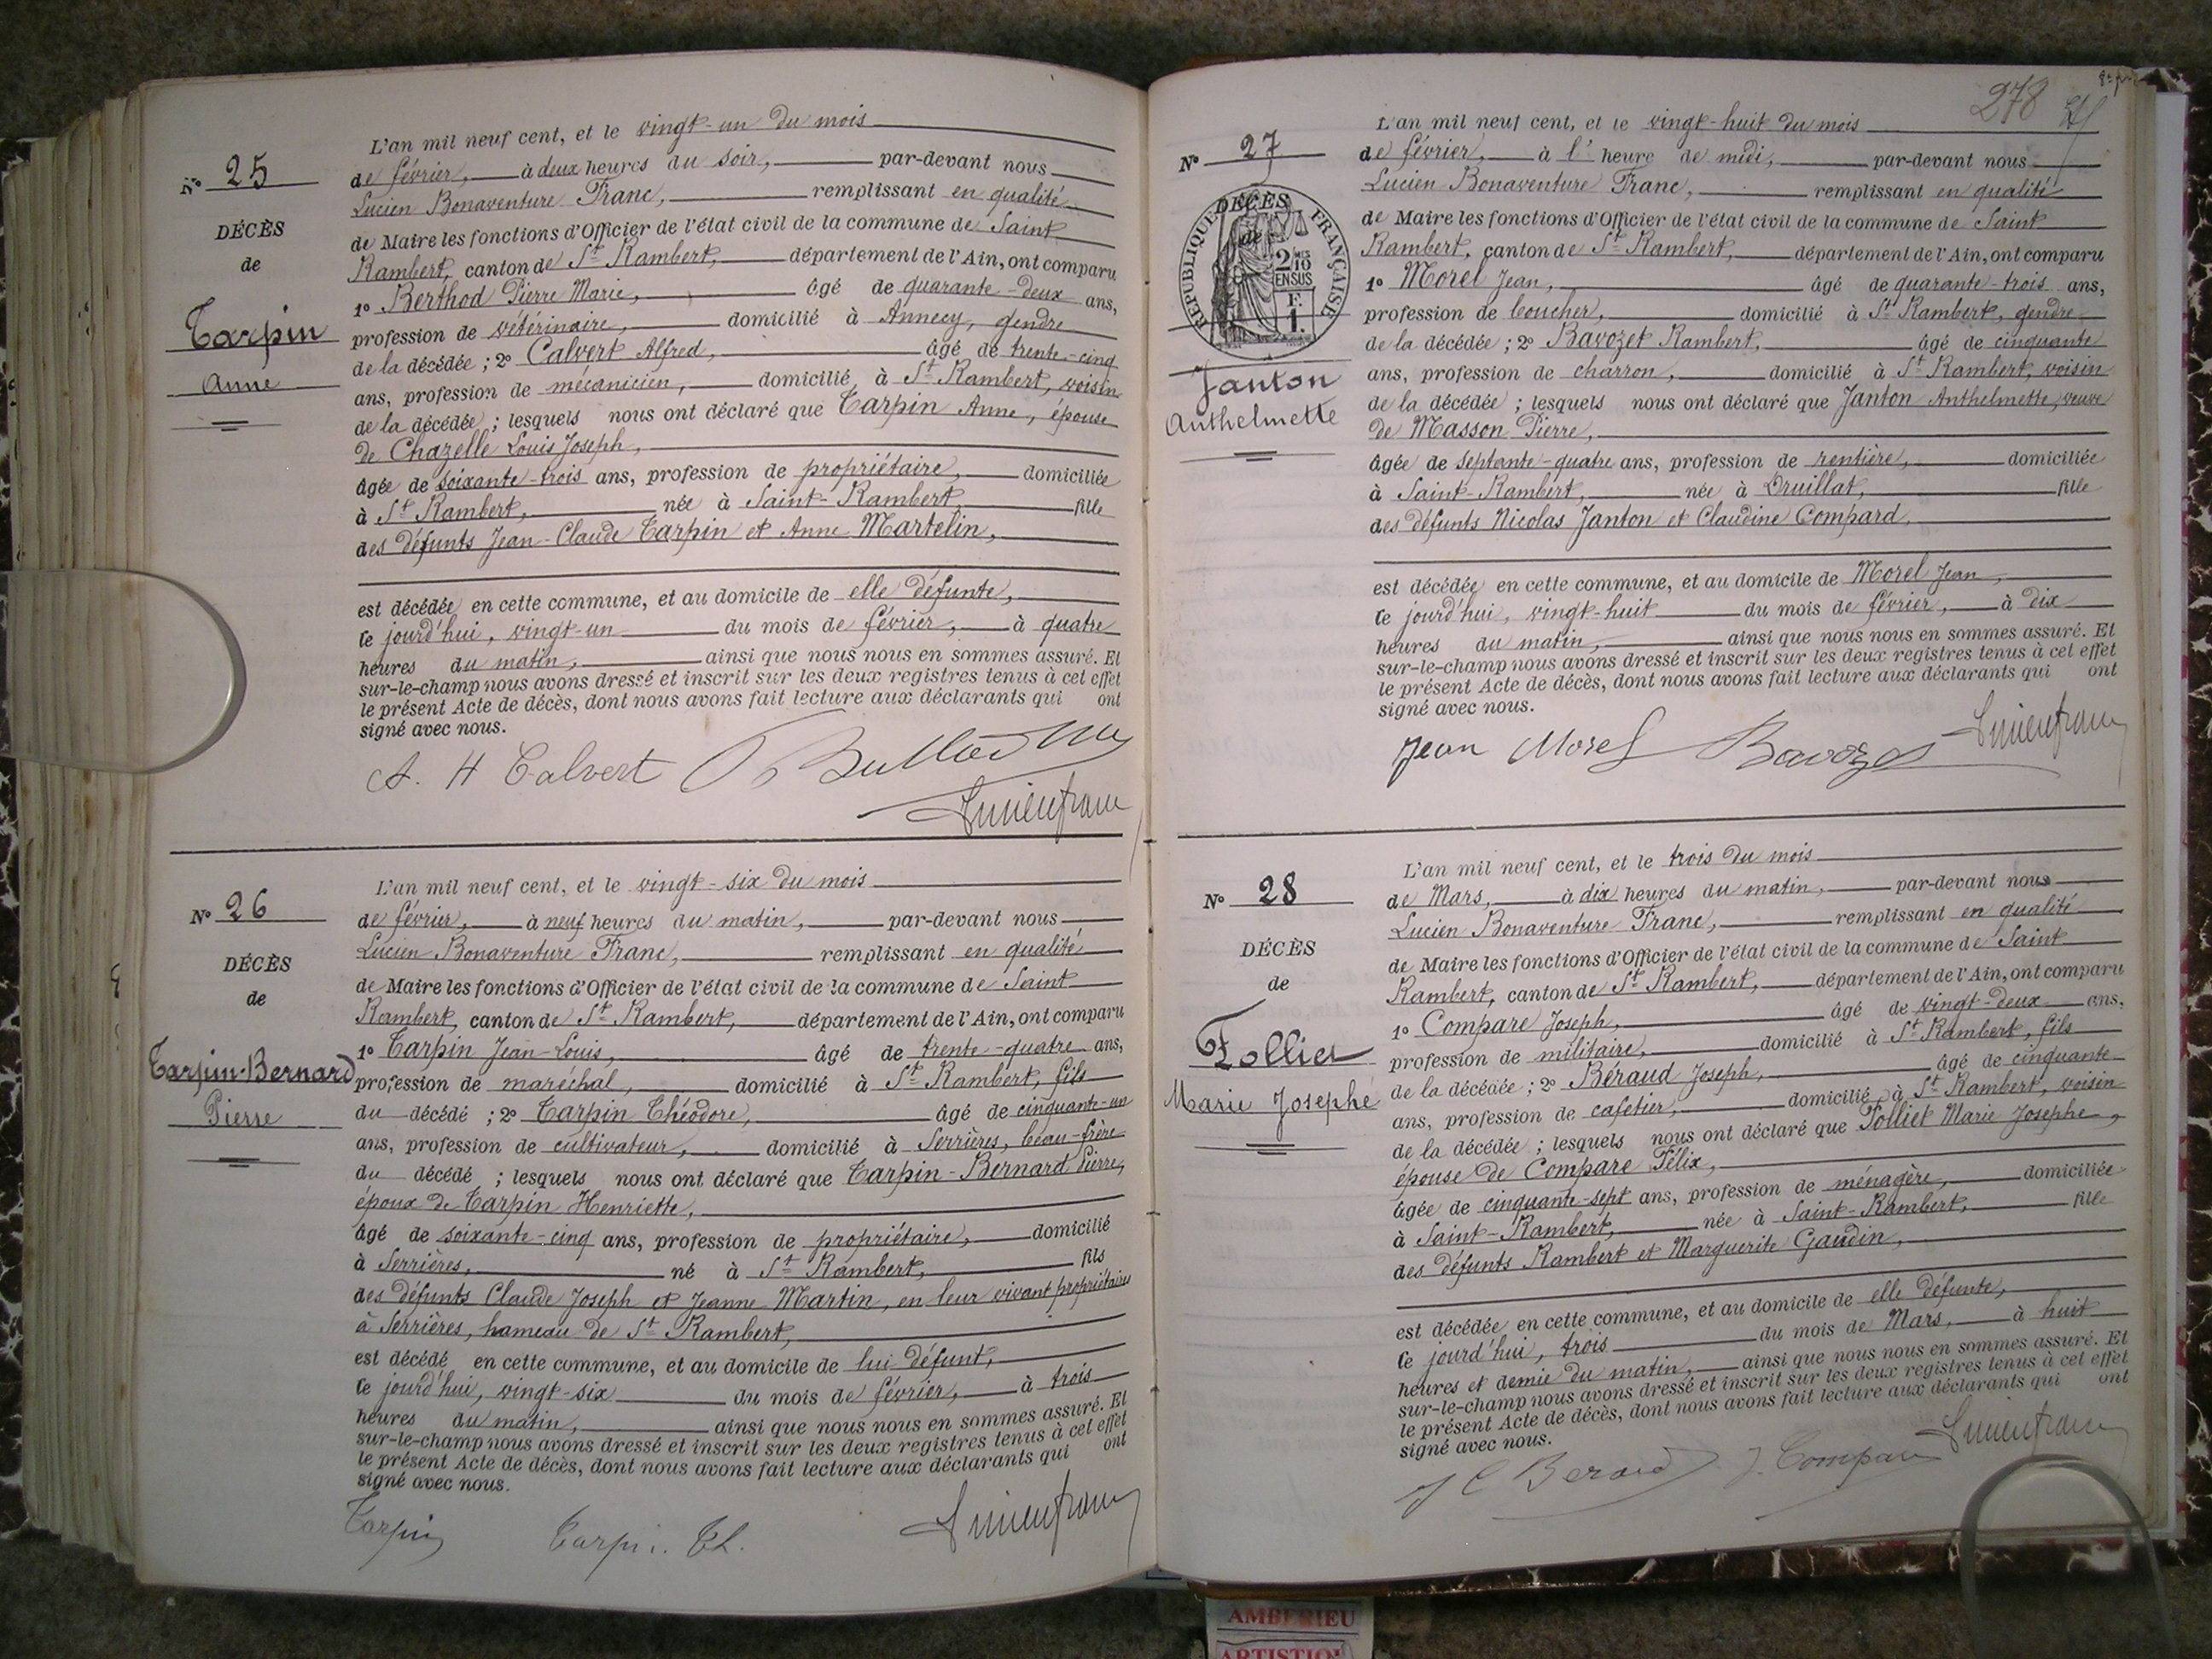 L'an mil neuf cent, et le vingt-un du mois
N° 25
de février, à deux heures du soir, par-devant nous
Lucien Bonaventure Franc, remplissant en qualité
DÉCÈS
de Maire les fonctions d'Officier de l'état civil de la commune de Saint
de
Rambert, canton de St Rambert, département de l'Ain, ont comparu
1° Berthod Pierre Marie, âgé de quarante-deux ans,
Tarpin
profession de vétérinaire, domicilié à Annecy, gendre
de la décédée ; 2° Calvert Alfred, âgé de trente-cinq
Anne
ans, profession de mécanicien, domicilié à St Rambert, voisin
de la décédée ; lesquels nous ont déclaré que Tarpin Anne, épouse
de Chazelle Louis Joseph,
âgée de soixante-trois ans, profession de propriétaire, domiciliée
à St Rambert, née à Saint-Rambert fille
des défunts Jean-Claude Tarpin et Anne Martelin,
est décédée en cette commune, et au domicile de elle défunte,
ce jourd'hui, vingt-un du mois de février, à quatre
heures du matin, ainsi que nous nous en sommes assuré. Et
sur-le-champ nous avons dressé et inscrit sur les deux registres tenus à cet effet
le présent Acte de décès, dont nous avons fait lecture aux déclarants qui ont
signé avec nous.
A. H Calvert
Lucien franc
L'an mil neuf cent, et le vingt-six du mois
N° 26
de février, à neuf heures du matin, par-devant nous
Lucien Bonaventure Franc, remplissant en qualité
DÉCÈS
de Maire les fonctions d'Officier de l'état civil de la commune de Saint
de
Rambert, canton de St Rambert, département de l'Ain, ont comparu
1° Tarpin Jean-Louis, âgé de trente-quatre ans,
Tarpin-Bernard
profession de maréchal, domicilié à St Rambert, fils
Pierre
du décédé ; 2° Tarpin Théodore, âgé de cinquante-un
ans, profession de cultivateur, domicilié à Serrières, beau-frère
du décédé ; lesquels nous ont déclaré que Tarpin-Bernard Pierre,
époux de Tarpin Henriette,
âgé de soixante-cinq ans, profession de propriétaire, domicilié
à Serrières, né à St Rambert, fils
des défunts Claude Joseph et Jeanne Martin, en leur vivant propriétaires
à Serrières, hameau de St Rambert,
est décédé en cette commune, et au domicile de lui défunt,
ce jourd'hui, vingt-six du mois de février, à trois
heures du matin, ainsi que nous nous en sommes assuré. Et
sur-le-champ nous avons dressé et inscrit sur les deux registres tenus à cet effet
le présent Acte de décès, dont nous avons fait lecture aux déclarants qui ont
signé avec nous.
Tarpin Tarpin. Th. Lucien franc
278
L'an mil neuf cent, et le vingt-huit du mois
N° 27
de février, à l'heure de midi, par-devant nous
Lucien Bonaventure Franc, remplissant en qualité
DÉCÈS
de
RÉPUBLIQUE FRANÇAISE
2/10 EN SUS
F. 1.
de Maire les fonctions d'Officier de l'état civil de la commune de Saint
Rambert, canton de St Rambert, département de l'Ain, ont comparu
1° Morel Jean, âgé de quarante-trois ans,
profession de boucher, domicilié à St Rambert, gendre
de la décédée ; 2° Bavozet Rambert, âgé de cinquante
Janton
ans, profession de charron, domicilié à St Rambert, voisin
Anthelmette
de la décédée ; lesquels nous ont déclaré que Janton Anthelmette, veuve
de Masson Pierre,
âgée de septante-quatre ans, profession de rentière, domiciliée
à Saint-Rambert, née à Druillat, fille
des défunts Nicolas Janton et Claudine Compard,
est décédée en cette commune, et au domicile de Morel Jean,
ce jourd'hui, vingt-huit du mois de février, à dix
heures du matin, ainsi que nous nous en sommes assuré. Et
sur-le-champ nous avons dressé et inscrit sur les deux registres tenus à cet effet
le présent Acte de décès, dont nous avons fait lecture aux déclarants qui ont
signé avec nous.
Jean Morel Bavozet Lucien franc
L'an mil neuf cent, et le trois du mois
N° 28
de Mars, à dix heures du matin, par-devant nous
Lucien Bonaventure Franc, remplissant en qualité
DÉCÈS
de Maire les fonctions d'Officier de l'état civil de la commune de Saint
de
Rambert, canton de St Rambert, département de l'Ain, ont comparu
1° Compare Joseph, âgé de vingt-deux ans,
Folliet
profession de militaire, domicilié à St Rambert, fils
de la décédée ; 2° Béraud Joseph, âgé de cinquante
Marie Josephe
ans, profession de cafetier, domicilié à St Rambert, voisin
de la décédée ; lesquels nous ont déclaré que Folliet Marie Josephe,
épouse de Compare Félix,
âgée de cinquante-sept ans, profession de ménagère, domiciliée
à Saint-Rambert, née à Saint-Rambert, fille
des défunts Rambert et Marguerite Gaudin,
est décédée en cette commune, et au domicile de elle défunte,
ce jourd'hui, trois du mois de Mars, à huit
heures et demie du matin, ainsi que nous nous en sommes assuré. Et
sur-le-champ nous avons dressé et inscrit sur les deux registres tenus à cet effet
le présent Acte de décès, dont nous avons fait lecture aux déclarants qui ont
signé avec nous.
J C Beraud J. Compare Lucien franc
AMBERIEU